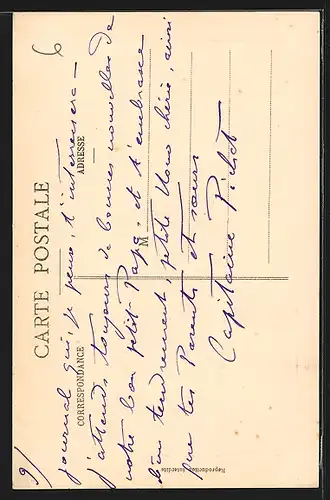 CARTE POSTALE
CORRESPONDANCE
ADRESSE
M
Reproduction interdite
6
9/
journal qui, je pense, t'interressera -
j'attends toujours de bonnes nouvelles de
notre bon petit Papa, et t'embrasse
bien tendrement, petite Nono chérie, ainsi
que tes Parents et sœurs
Capitaine Pichot